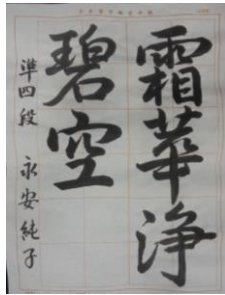 霜華浄
碧空
準四段 永安純子